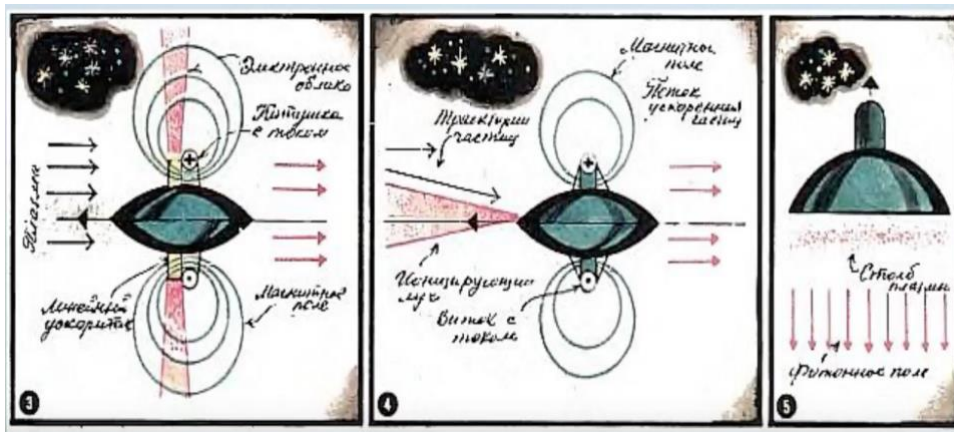 Электронное
облако
Катушка
с током
Плазма
Линейный
ускоритель
Магнитное
поле
3
Магнитное
поле
Поток
ускоренных
частиц
Траектории
частиц
Ионизирующий
луч
Виток с
током
4
Столб
плазмы
Фотонное поле
5